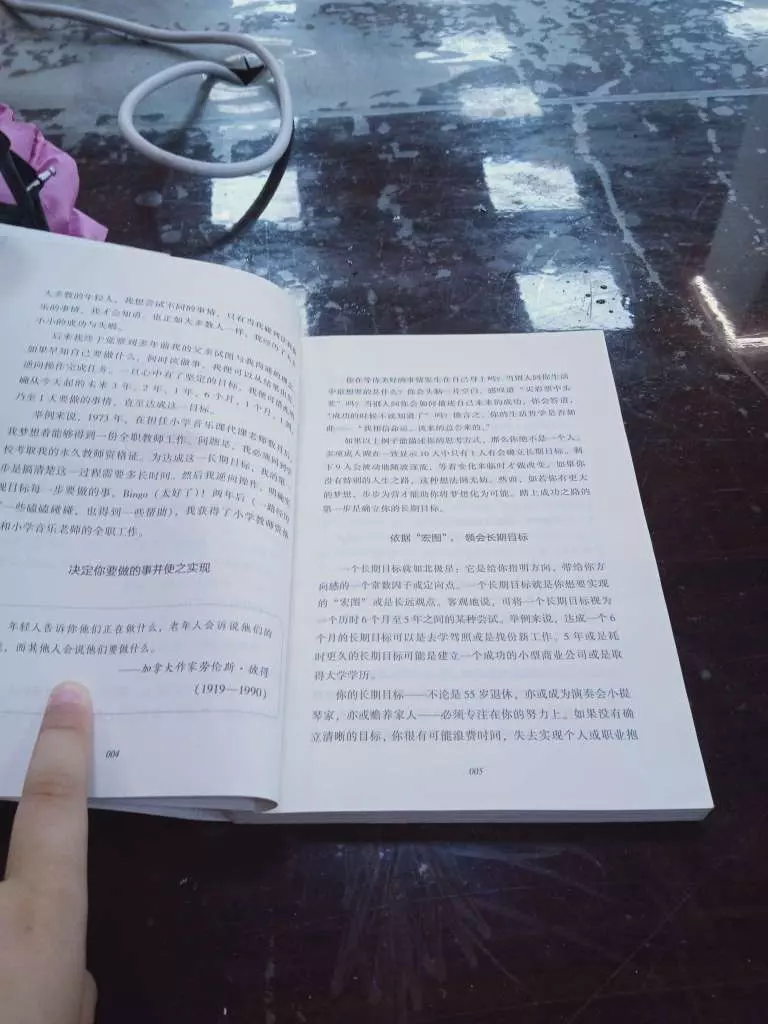 大多数的年轻人，我想尝试不同的事情，只有当我
乐的事情，我才会知道。也正如大多数人一样，我经历了大大
小小的成功与失败。
后来我终于觉察到多年前我的父亲试图与我沟通的
如果早知自己要做什么，何时该做事，我便可以从结果出发，
逆向操作完成任务。一旦心中有了坚定的目标，我便可
确从今天起的未来 3 年、2 年、1 年、6 个月、1 个月、1 周，
乃至 1 天要做的事情，直至达成这一目标。
举例来说，1973 年，在担任小学音乐课代课老师数月后，
我梦想着能够得到一份全职教师工作。问题是，我必须回到学
校考取我的永久教师资格证。为达成这一长期目标，我的第一
步是搞清楚这一过程需要多长时间。然后我逆向操作，明确
现目标每一步要做的事，Bingo（太好了）！两年后（一路经历
一些磕磕碰碰，也得到一些帮助），我获得了小学教师资格
和小学音乐老师的全职工作。
决定你要做的事并使之实现
年轻人告诉你他们正在做什么，老年人会诉说他们的
，而其他人会说他们要做什么。
——加拿大作家劳伦斯·彼得
（1919—1990）
004
你在等待美好的事情发生在自己身上吗？当别人问你生活
中最想要的是什么？你会头脑一片空白，感叹道“买彩票中头
奖”吗？当别人问你会如何描述自己未来的成功，你会答道，
“成功的时候不就知道了”吗？换言之，你的生活哲学是否如
此——“我相信命运。该来的总会来的。”
如果以上例子能描述你的思考方式，那么你绝不是一个人。
多项成人调查一致显示 10 人中只有 1 人有会确立长期目标。剩
下 9 人会被动地随波逐流，等着变化来临时才做改变。如果你
没有特别的人生之路，这种想法倒无妨。然而，如若你有更大
的梦想，步步为营才能助你将梦想化为可能。踏上成功之路的
第一步是确立你的长期目标。
依据“宏图”，领会长期目标
一个长期目标就如北极星：它是给你指明方向，带给你方
向感的一个常数因子或定向点。一个长期目标就是你想要实现
的“宏图”或是长远观点。客观地说，可将一个长期目标视为
一个历时 6 个月至 5 年之间的某种尝试。举例来说，达成一个 6
个月的长期目标可以是去学驾照或是找份新工作。5 年或是耗
时更久的长期目标可能是建立一个成功的小型商业公司或是取
得大学学历。
你的长期目标——不论是 55 岁退休，亦或成为演奏会小提
琴家，亦或赡养家人——必须专注在你的努力上。如果没有确
立清晰的目标，你很有可能浪费时间，失去实现个人或职业抱
005